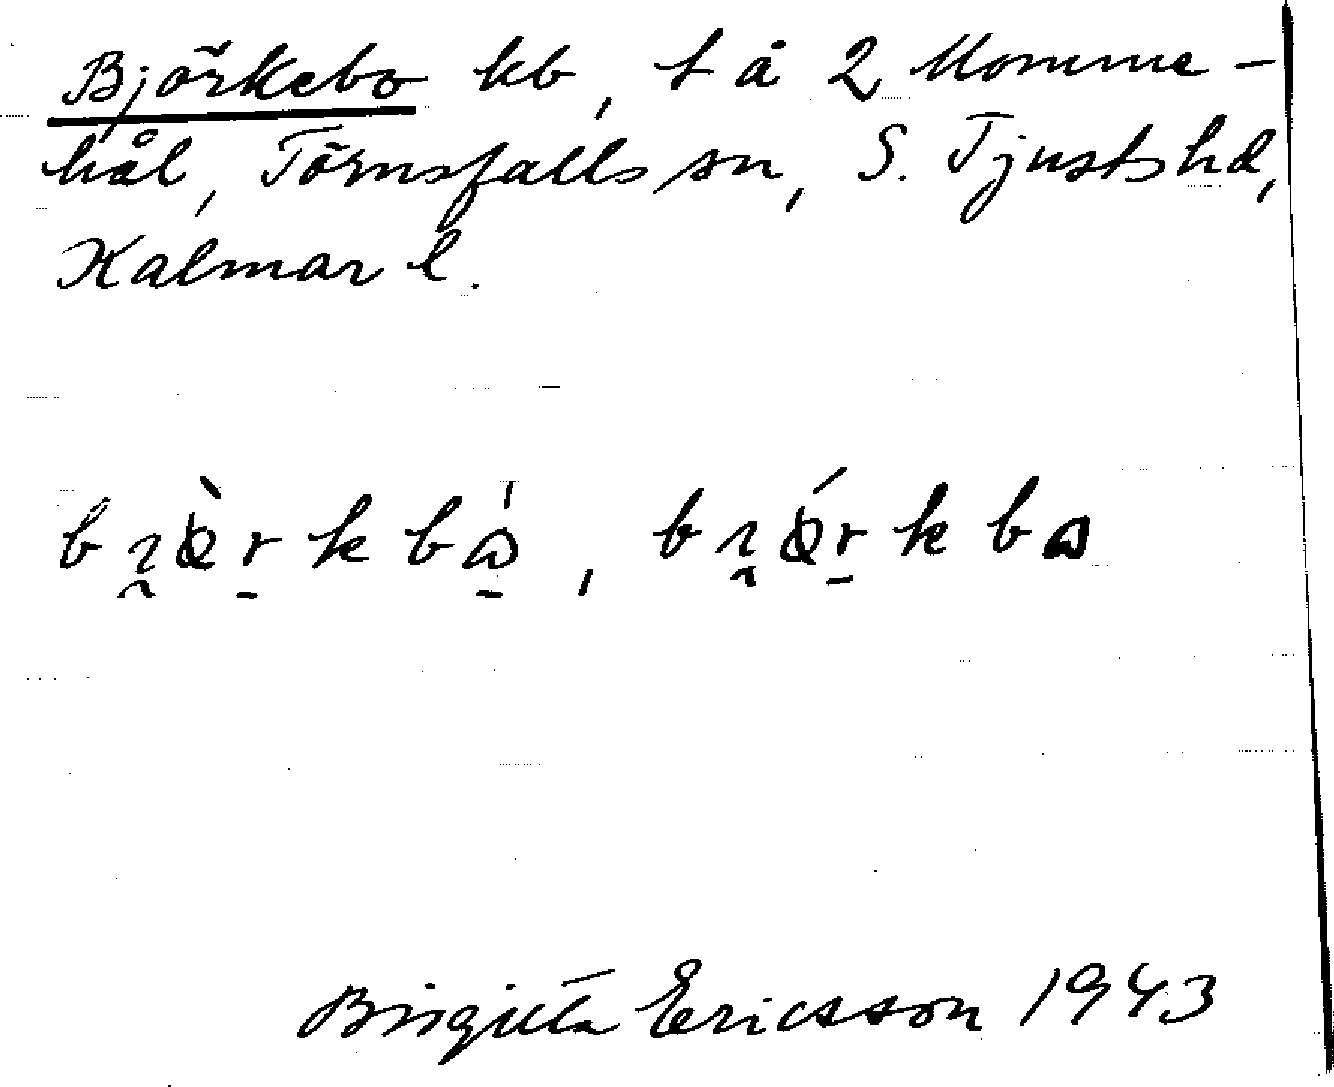 Björkebo hb, t å 2 Momme-
hål, Törnsfalls sn, S. Tjusts hd,
Kalmar l.
Birgitta Ericsson 1943